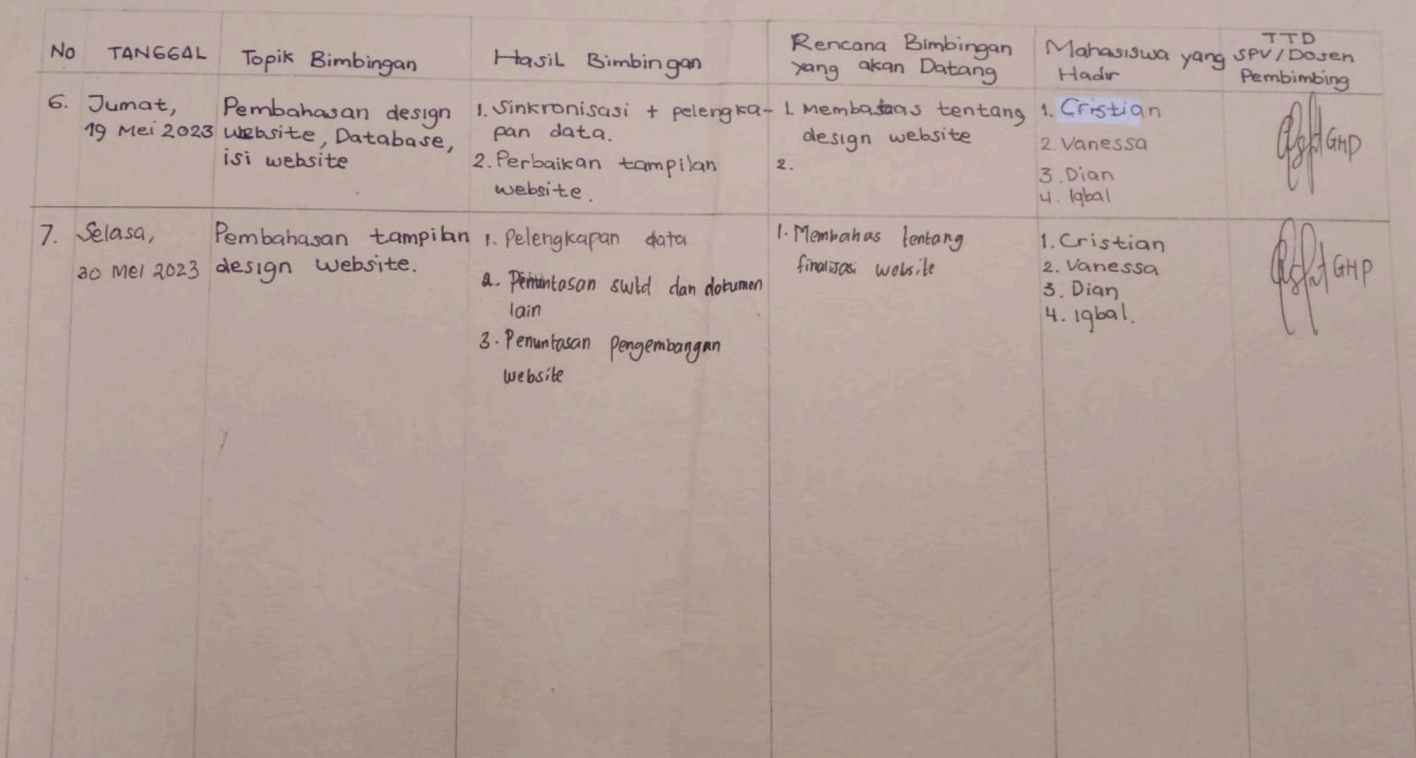 No
TANGGAL
Topik Bimbingan
Hasil Bimbingan
Rencana Bimbingan
yang akan Datang
Mahasiswa yang
Hadir
TTD
SPV/Dosen
Pembimbing
6.
Jumat,
19 Mei 2023
Pembahasan design
website, Database,
isi website
1. Sinkronisasi + pelengka-
pan data.
2. Perbaikan tampilan
website.
1. Membahas tentang
design website
2.
1. Cristian
2. Vanessa
3. Dian
4. Iqbal
GHP
7.
Selasa,
30 MEI 2023
Pembahasan tampilan
design website.
1. Pelengkapan data
2. Penuntasan swtd dan dokumen
lain
3. Penuntasan pengembangan
website
1. Membahas tentang
finalisasi website
1. Cristian
2. Vanessa
3. Dian
4. Iqbal.
GHP